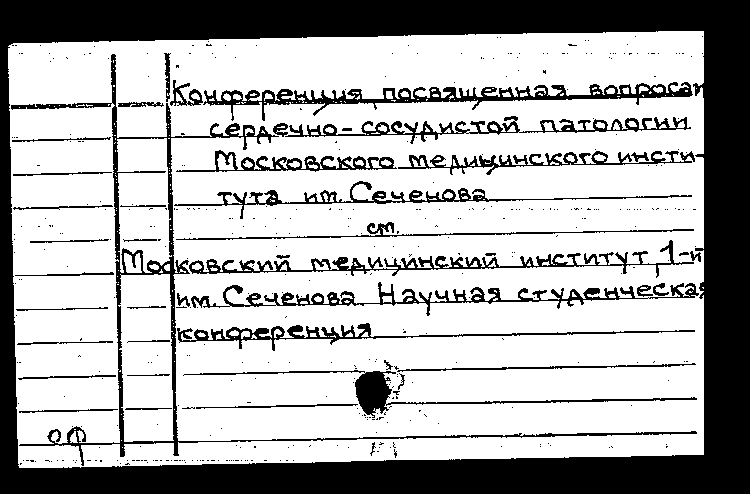 Конференция посвященная вопросам
сердечно-сосудистой патологии
Московского медицинского инсти-
тута им. Сеченова
см.
Московский медицинский институт, 1-й
им. Сеченова Научная студенческая
конференция
оф